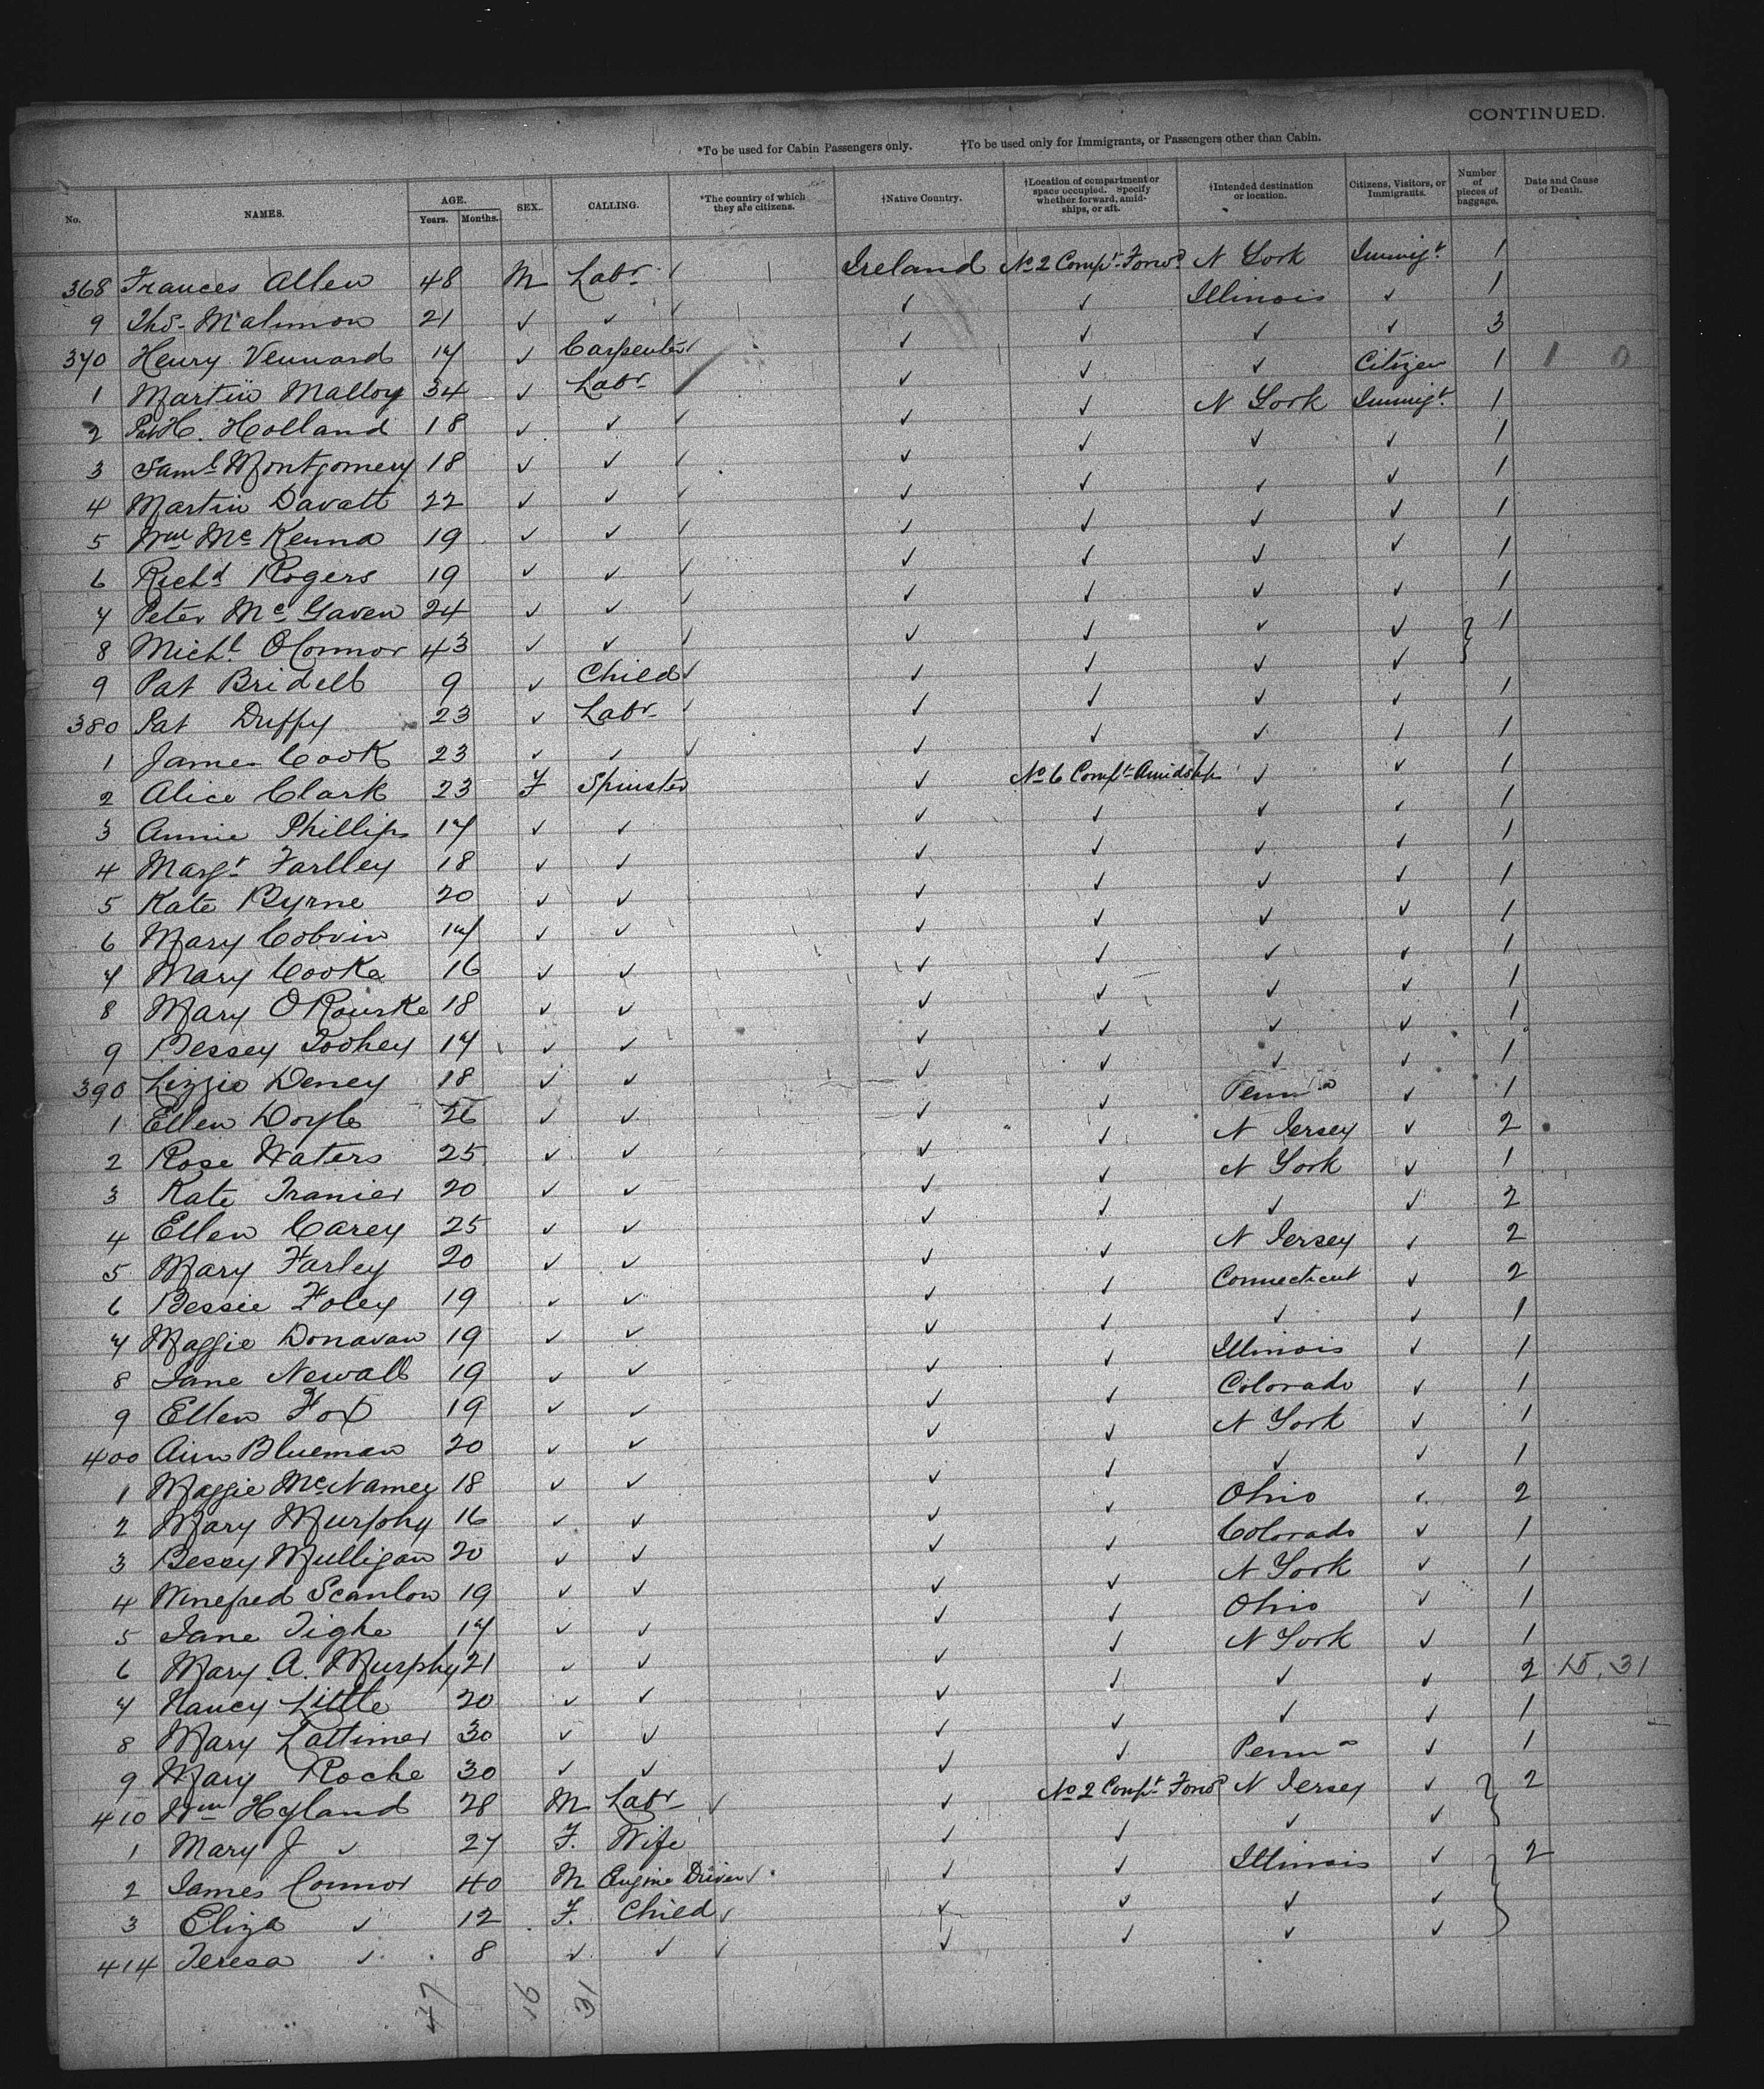 CONTINUED.
*To be used for Cabin Passengers only. †To be used only for Immigrants, or Passengers other than Cabin.
No. NAMES. AGE. Years. Months. SEX. CALLING. *The country of which they are citizens. †Native Country. †Location of compartment or space occupied. Specify whether forward, amidships, or aft. †Intended destination or location. Citizens, Visitors, or Immigrants. Number of pieces of baggage. Date and Cause of Death.
368 Frances Allen 48 M Labr ✓ Ireland No 2 Compt Forwd N York Immigt 1
9 Thos McMahon 21 ✓ ✓ ✓ ✓ ✓ Illinois ✓ 1
370 Henry Vennard 17 ✓ Carpenter ✓ ✓ ✓ ✓ ✓ 3
1 Martin Malloy 34 ✓ Labr ✓ ✓ ✓ Citizen 1 1 0
2 Pat H. Holland 18 ✓ ✓ ✓ ✓ ✓ N York Immigt 1
3 Saml Montgomery 18 ✓ ✓ ✓ ✓ ✓ ✓ ✓ 1
4 Martin Davatt 22 ✓ ✓ ✓ ✓ ✓ ✓ ✓ 1
5 Wm Mc Kenna 19 ✓ ✓ ✓ ✓ ✓ ✓ ✓ 1
6 Richd Rogers 19 ✓ ✓ ✓ ✓ ✓ ✓ ✓ 1
7 Peter Mc Gaven 24 ✓ ✓ ✓ ✓ ✓ ✓ ✓ 1
8 Michl OConnor 43 ✓ ✓ ✓ ✓ ✓ ✓ ✓ } 1
9 Pat Bridell 9 ✓ Child ✓ ✓ ✓ ✓ ✓
380 Pat Duffy 23 ✓ Labr ✓ ✓ ✓ ✓ ✓ 1
1 James Cook 23 ✓ ✓ ✓ ✓ ✓ ✓ ✓ 1
2 Alice Clark 23 F Spinster ✓ No 6 Compt Amidships ✓ ✓ 1
3 Annie Phillips 17 ✓ ✓ ✓ ✓ ✓ ✓ 1
4 Margt Farlley 18 ✓ ✓ ✓ ✓ ✓ ✓ 1
5 Kate Byrne 20 ✓ ✓ ✓ ✓ ✓ ✓ 1
6 Mary Colvin 17 ✓ ✓ ✓ ✓ ✓ ✓ 1
7 Mary Cooke 16 ✓ ✓ ✓ ✓ ✓ ✓ 1
8 Mary ORourke 18 ✓ ✓ ✓ ✓ ✓ ✓ 1
9 Bessey Toohey 17 ✓ ✓ ✓ ✓ ✓ ✓ 1
390 Lizzie Deney 18 ✓ ✓ ✓ ✓ ✓ ✓ 1
1 Ellen Doyle 26 ✓ ✓ ✓ ✓ Penna ✓ 1
2 Rose Waters 25 ✓ ✓ ✓ ✓ N Jersey ✓ 2
3 Kate Tranier 20 ✓ ✓ ✓ ✓ N York ✓ 1
4 Ellen Carey 25 ✓ ✓ ✓ ✓ ✓ ✓ 2
5 Mary Farley 20 ✓ ✓ ✓ ✓ N Jersey ✓ 2
6 Bessie Foley 19 ✓ ✓ ✓ ✓ Connecticut ✓ 2
7 Maggie Donavan 19 ✓ ✓ ✓ ✓ ✓ ✓ 1
8 Jane Newall 19 ✓ ✓ ✓ ✓ Illinois ✓ 1
9 Ellen Fox 19 ✓ ✓ ✓ ✓ Colorado ✓ 1
400 Ann Blueman 20 ✓ ✓ ✓ ✓ N York ✓ 1
1 Maggie McNamey 18 ✓ ✓ ✓ ✓ ✓ ✓ 1
2 Mary Murphy 16 ✓ ✓ ✓ ✓ Ohio ✓ 2
3 Bessy Mulligan 20 ✓ ✓ ✓ ✓ Colorado ✓ 1
4 Winefred Scanlon 19 ✓ ✓ ✓ ✓ N York ✓ 1
5 Jane Tighe 17 ✓ ✓ ✓ ✓ Ohio ✓ 1
6 Mary A. Murphy 21 ✓ ✓ ✓ ✓ N York ✓ 1
7 Nancy Little 20 ✓ ✓ ✓ ✓ ✓ ✓ 2 15, 31
8 Mary Lattimer 30 ✓ ✓ ✓ ✓ ✓ ✓ 1
9 Mary Roche 30 ✓ ✓ ✓ ✓ Penna ✓ 1
410 Wm Hyland 28 M Labr ✓ ✓ No 2 Compt Forwd N Jersey ✓ } 2
1 Mary J ✓ 27 F. Wife ✓ ✓ ✓ ✓
2 James Connor 40 M Engine Driver ✓ ✓ ✓ Illinois ✓ } 2
3 Eliza ✓ 12 F. Child ✓ ✓ ✓ ✓ ✓
414 Teresa ✓ 8 ✓ ✓ ✓ ✓ ✓ ✓ ✓
47 16 31